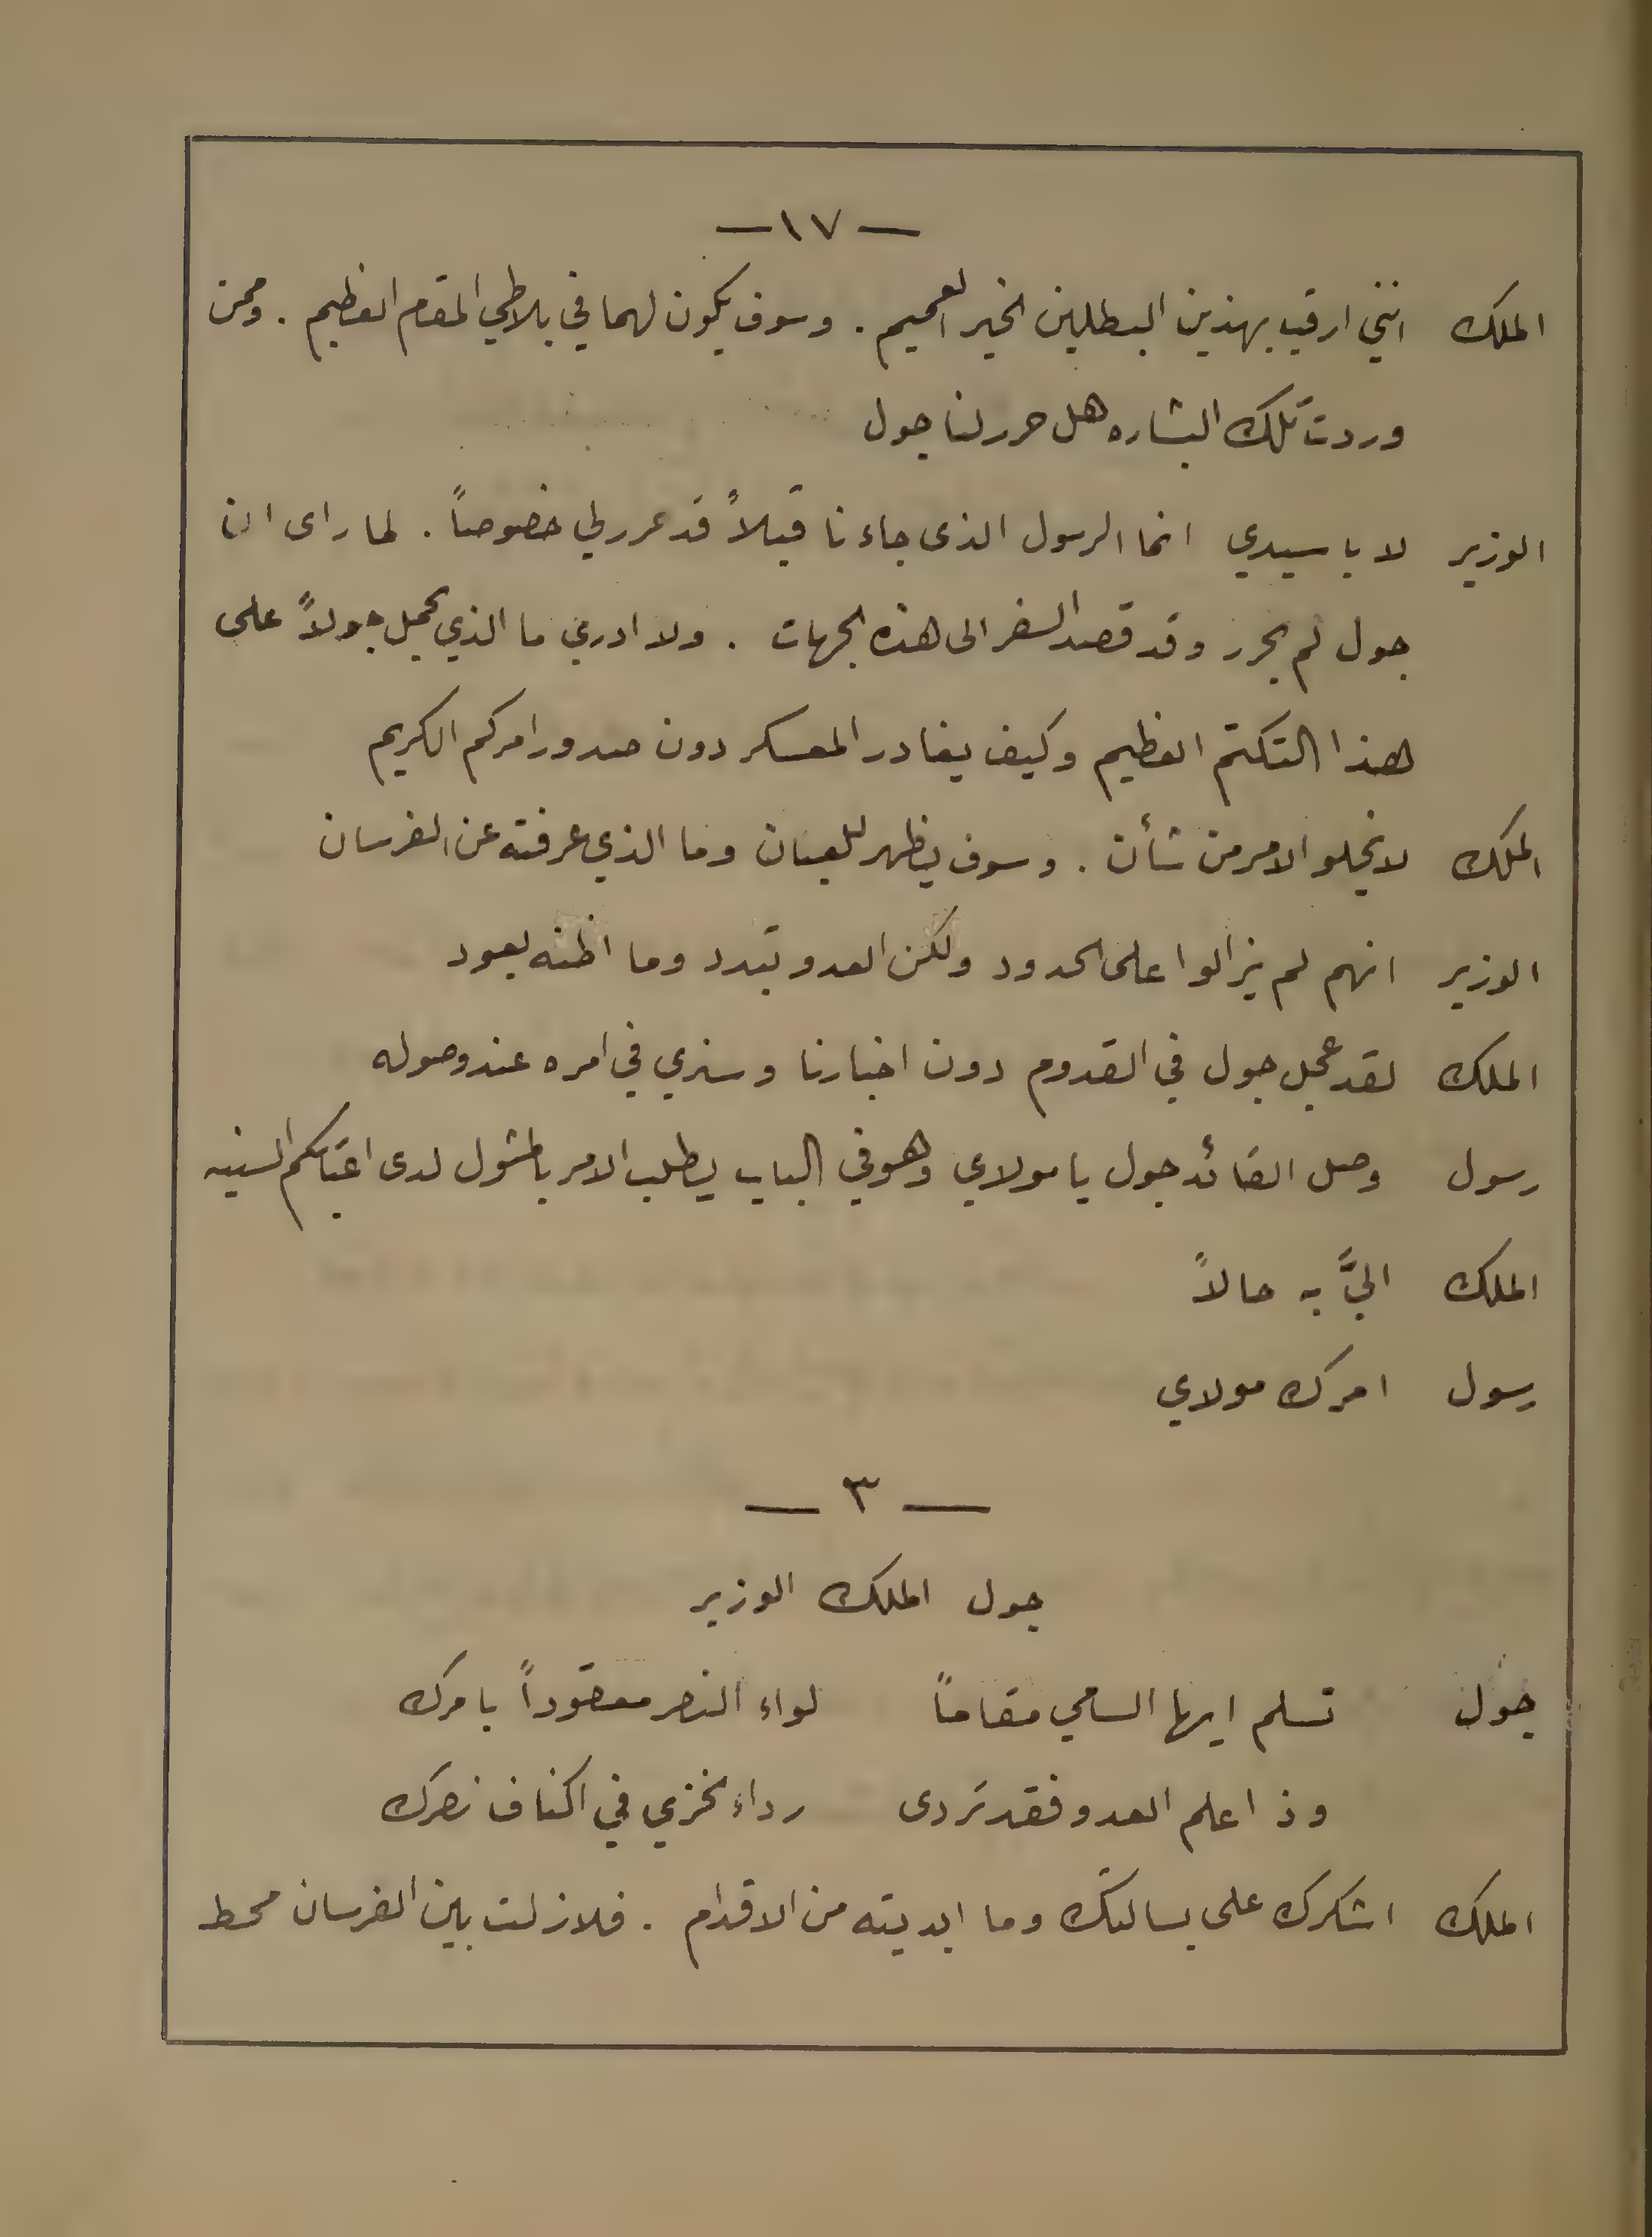 — ١٧ —
الملك انني ارقب بهذين البطلين الخير العميم . وسوف يكون لهما في بلاطي المقام العظيم . وممن
وردت تلك البشاره هل حرر لنا جول
الوزير لا يا سيدي انما الرسول الذى جاءنا قبلاً قد حرر لي خصوصاً . لما راى ان
جول لم يحرر وقد قصد السفر الى هذه الجهات . ولا ادري ما الذي يحمل جولاً على
هذا التكتم العظيم وكيف يغادر المعسكر دون صدور امركم الكريم
الملك لا يخلو الامر من شأن . وسوف يظهر للعيان وما الذي عرفته عن الفرسان
الوزير انهم لم يزالوا على الحدود ولكن العدو تبدد وما اظنه يعود
الملك لقد عجل جول في القدوم دون اخبارنا وسنري في امره عند وصوله
رسول وصل القائد جول يا مولاي وهو في الباب يطلب الامر بالمثول لدى اعتابكم السنيه
الملك اليَّ به حالاً
رسول امرك مولاي
— ٣ —
جول الملك الوزير
جول تسلم ايها السامي مقاماً لواء النصر معقوداً بامرك
وذا علم العدو فقد تردى رداء الخزي في اكناف نصرك
الملك اشكرك على بسالتك وما ابديته من الاقدام . فلا زلت بين الفرسان محط